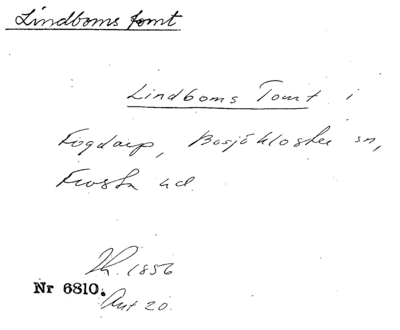 Lindboms tomt
Lindboms Tomt i
Fogdarp, Bosjökloster sn,
Frosta hd.
1856
Nr 6810.
Ant 20.